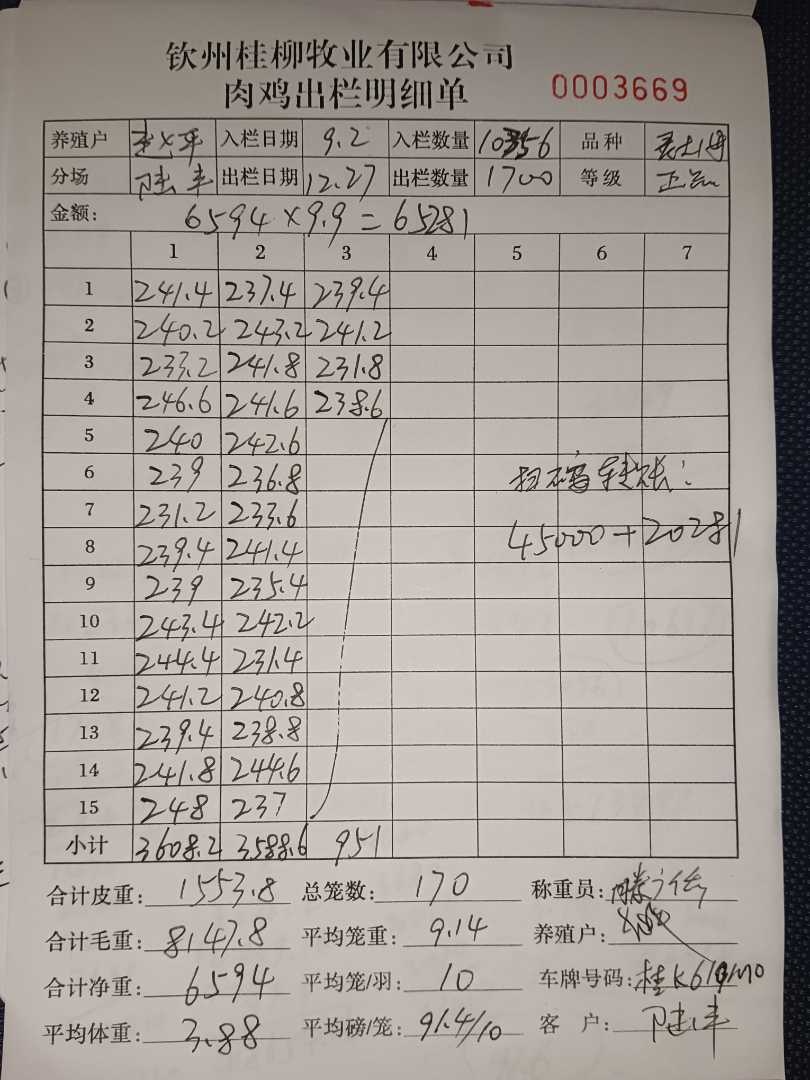 钦州桂柳牧业有限公司
肉鸡出栏明细单 0003669
养殖户 入栏日期 9.2 入栏数量 10356 品种
分场 陆丰 出栏日期 12.27 出栏数量 1700 等级
金额: 6594×9.9=65281
1 2 3 4 5 6 7
1 241.4 237.4 239.4
2 240.2 243.2 241.2
3 233.2 241.8 231.8
4 246.6 241.6 238.6
5 240 242.6
6 239 236.8 扫码转账:
7 231.2 233.6
8 239.4 241.4 45000+20281
9 239 235.4
10 243.4 242.2
11 244.4 231.4
12 241.2 240.8
13 239.4 238.8
14 241.8 244.6
15 248 237
小计 3608.2 3588.6 951
合计皮重: 1553.8 总笼数: 170 称重员:
合计毛重: 8147.8 平均笼重: 9.14 养殖户:
合计净重: 6594 平均笼/羽: 10 车牌号码:
平均体重: 3.88 平均磅/笼: 91.4/10 客 户: 陆丰